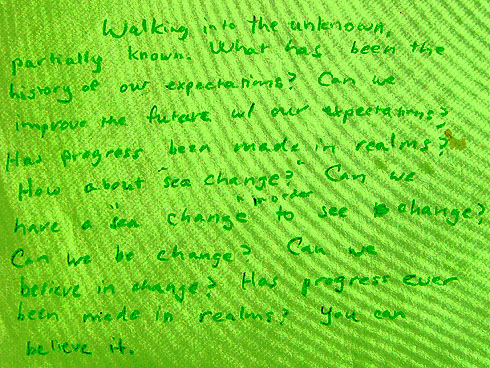 Walking into the unknown,
partially known. What has been the
history of our expectations? Can we
improve the future w/ our expectations?
Has progress been made in realms?
How about "sea change?" Can we
have a "sea change" in order to see change?
Can we be change? Can we
believe in change? Has progress ever
been made in realms? You can
believe it.